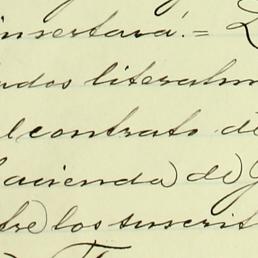 insertará.=
ados literalm
el contrato de
hacienda de G
tre los suscrit